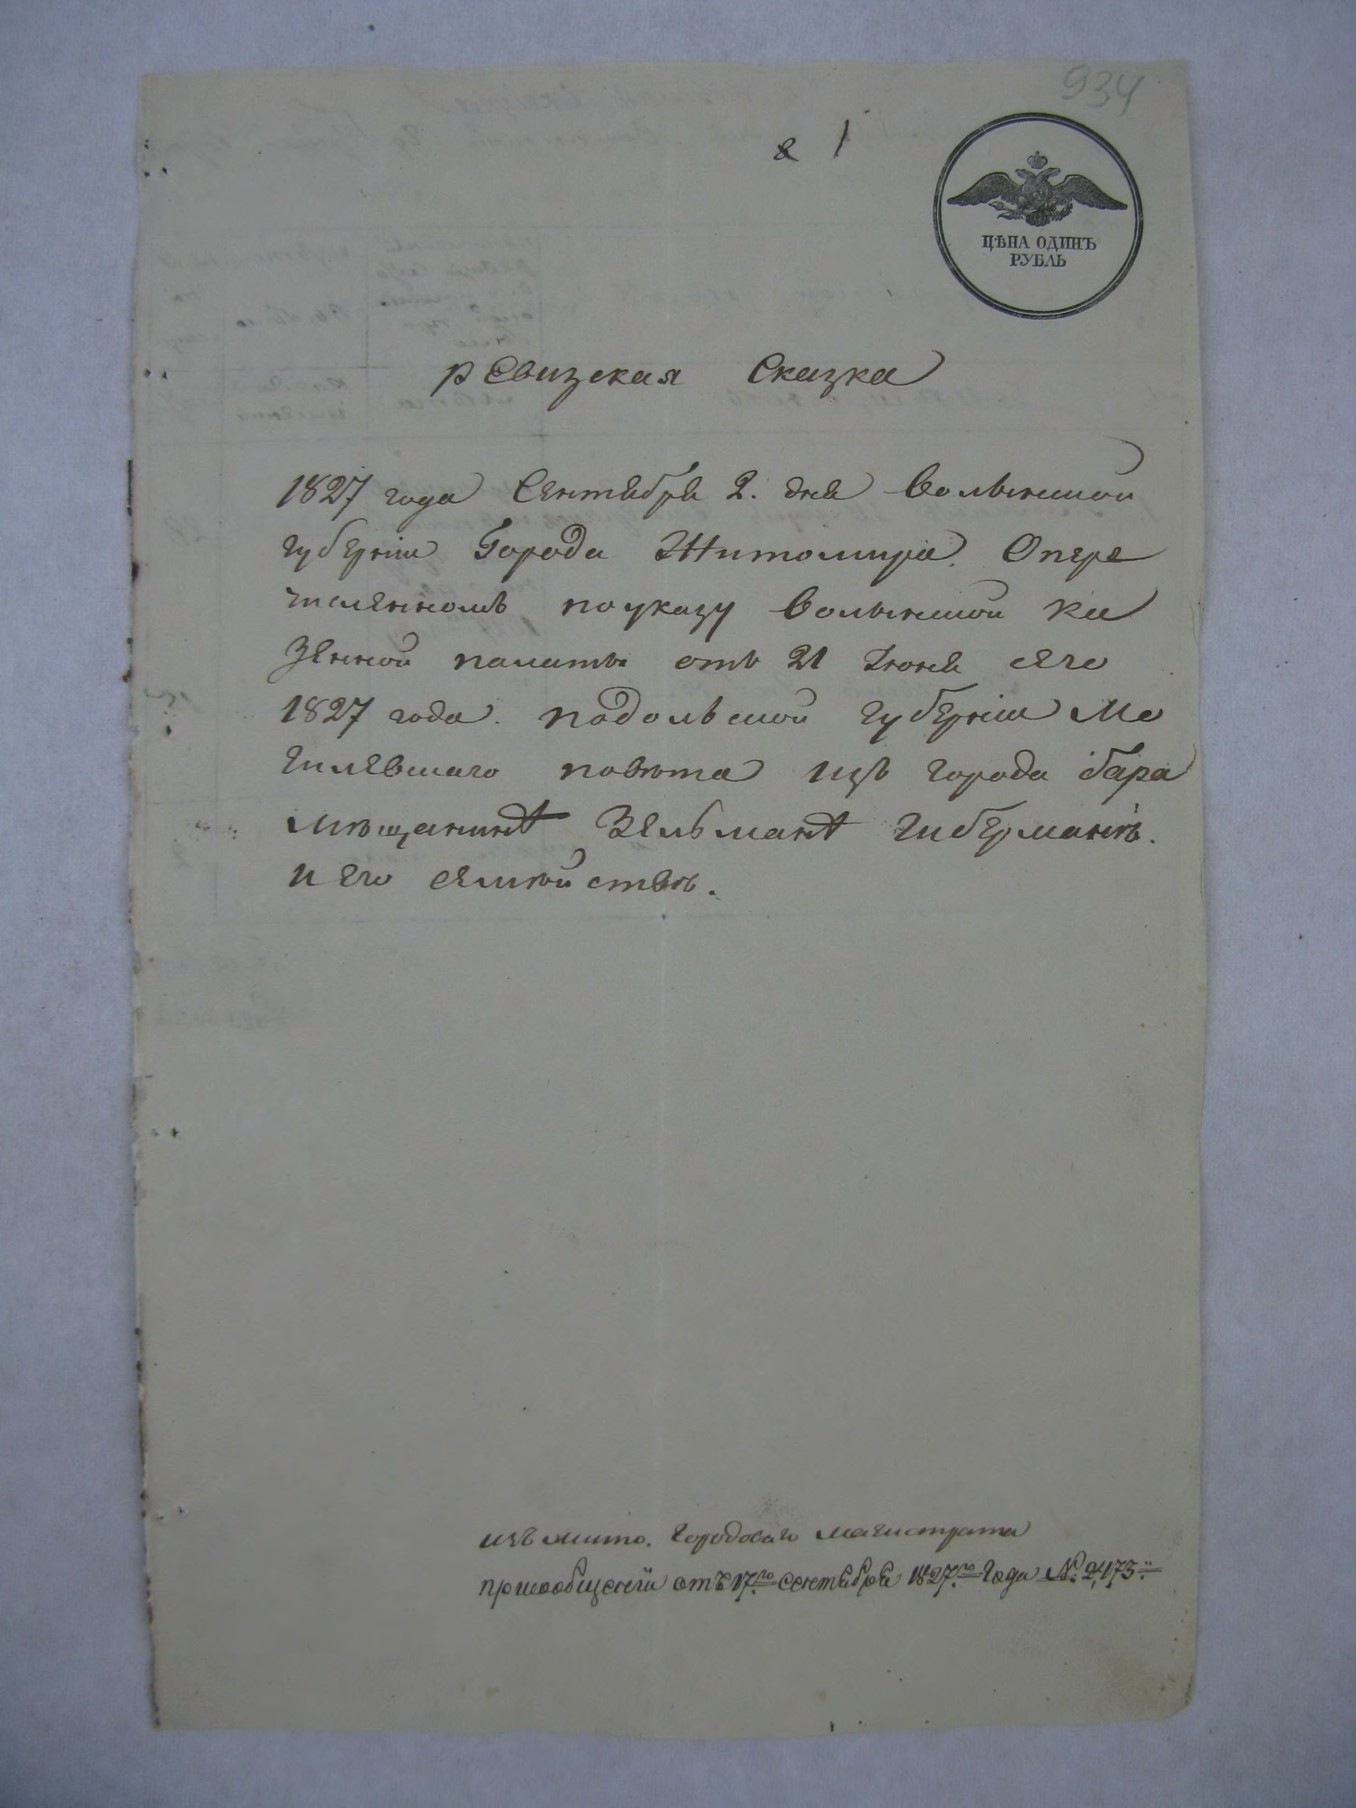 934
1
ЦѢНА ОДИНЪ
РУБЛЬ
Ревизская Сказка
1827 года Сентября 2. дня Волынской
губернiи Города Житомира. О пере
численномъ по указу Волынской Ка
зенной палаты отъ 21 Iюня сего
1827 года. подольской губернiи Мо
гилевскаго повѣта изъ города бара
мѣщанинѣ Зельманѣ Гиберманѣ.
и его семействѣ.
изъ жито. Городоваго магистрата
при сообщенiи отъ 17го сентября 1827го года № 2,473